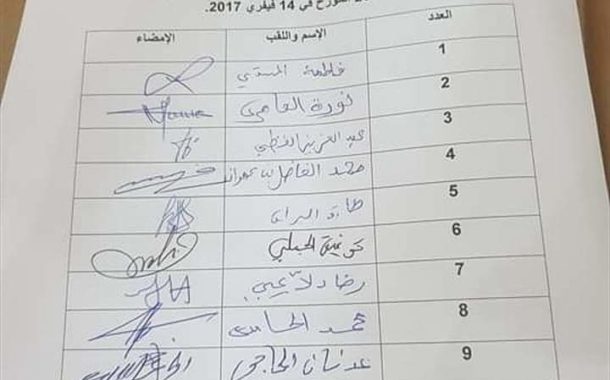 المؤرخ في 14 فيفري 2017.
العدد الإسم واللقب الإمضاء
1 فاطمة المسدي
2 نورة العامري
3 عبد العزيز القطي
4 محمد الفاضل بن عمران
5 طارق
6 الجملي
7 رضا دلاعي
8 محمد الحامدي
9 عدنان الحاجي